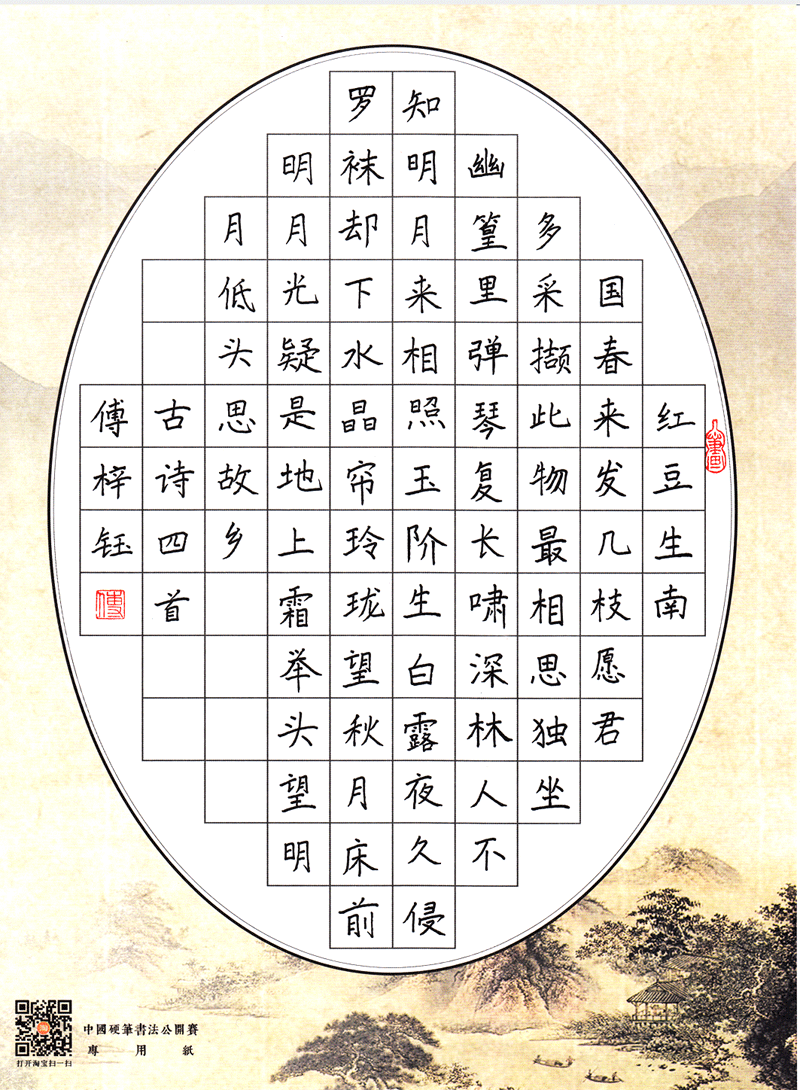 红豆生南
国春来发几枝愿君
多采撷此物最相思独坐
幽篁里弹琴复长啸深林人不
知明月来相照玉阶生白露夜久侵
罗袜却下水晶帘玲珑望秋月床前
明月光疑是地上霜举头望明
月低头思故乡
古诗四首
傅梓钰
傅
中國硬筆書法公開賽
專用紙
打开淘宝扫一扫